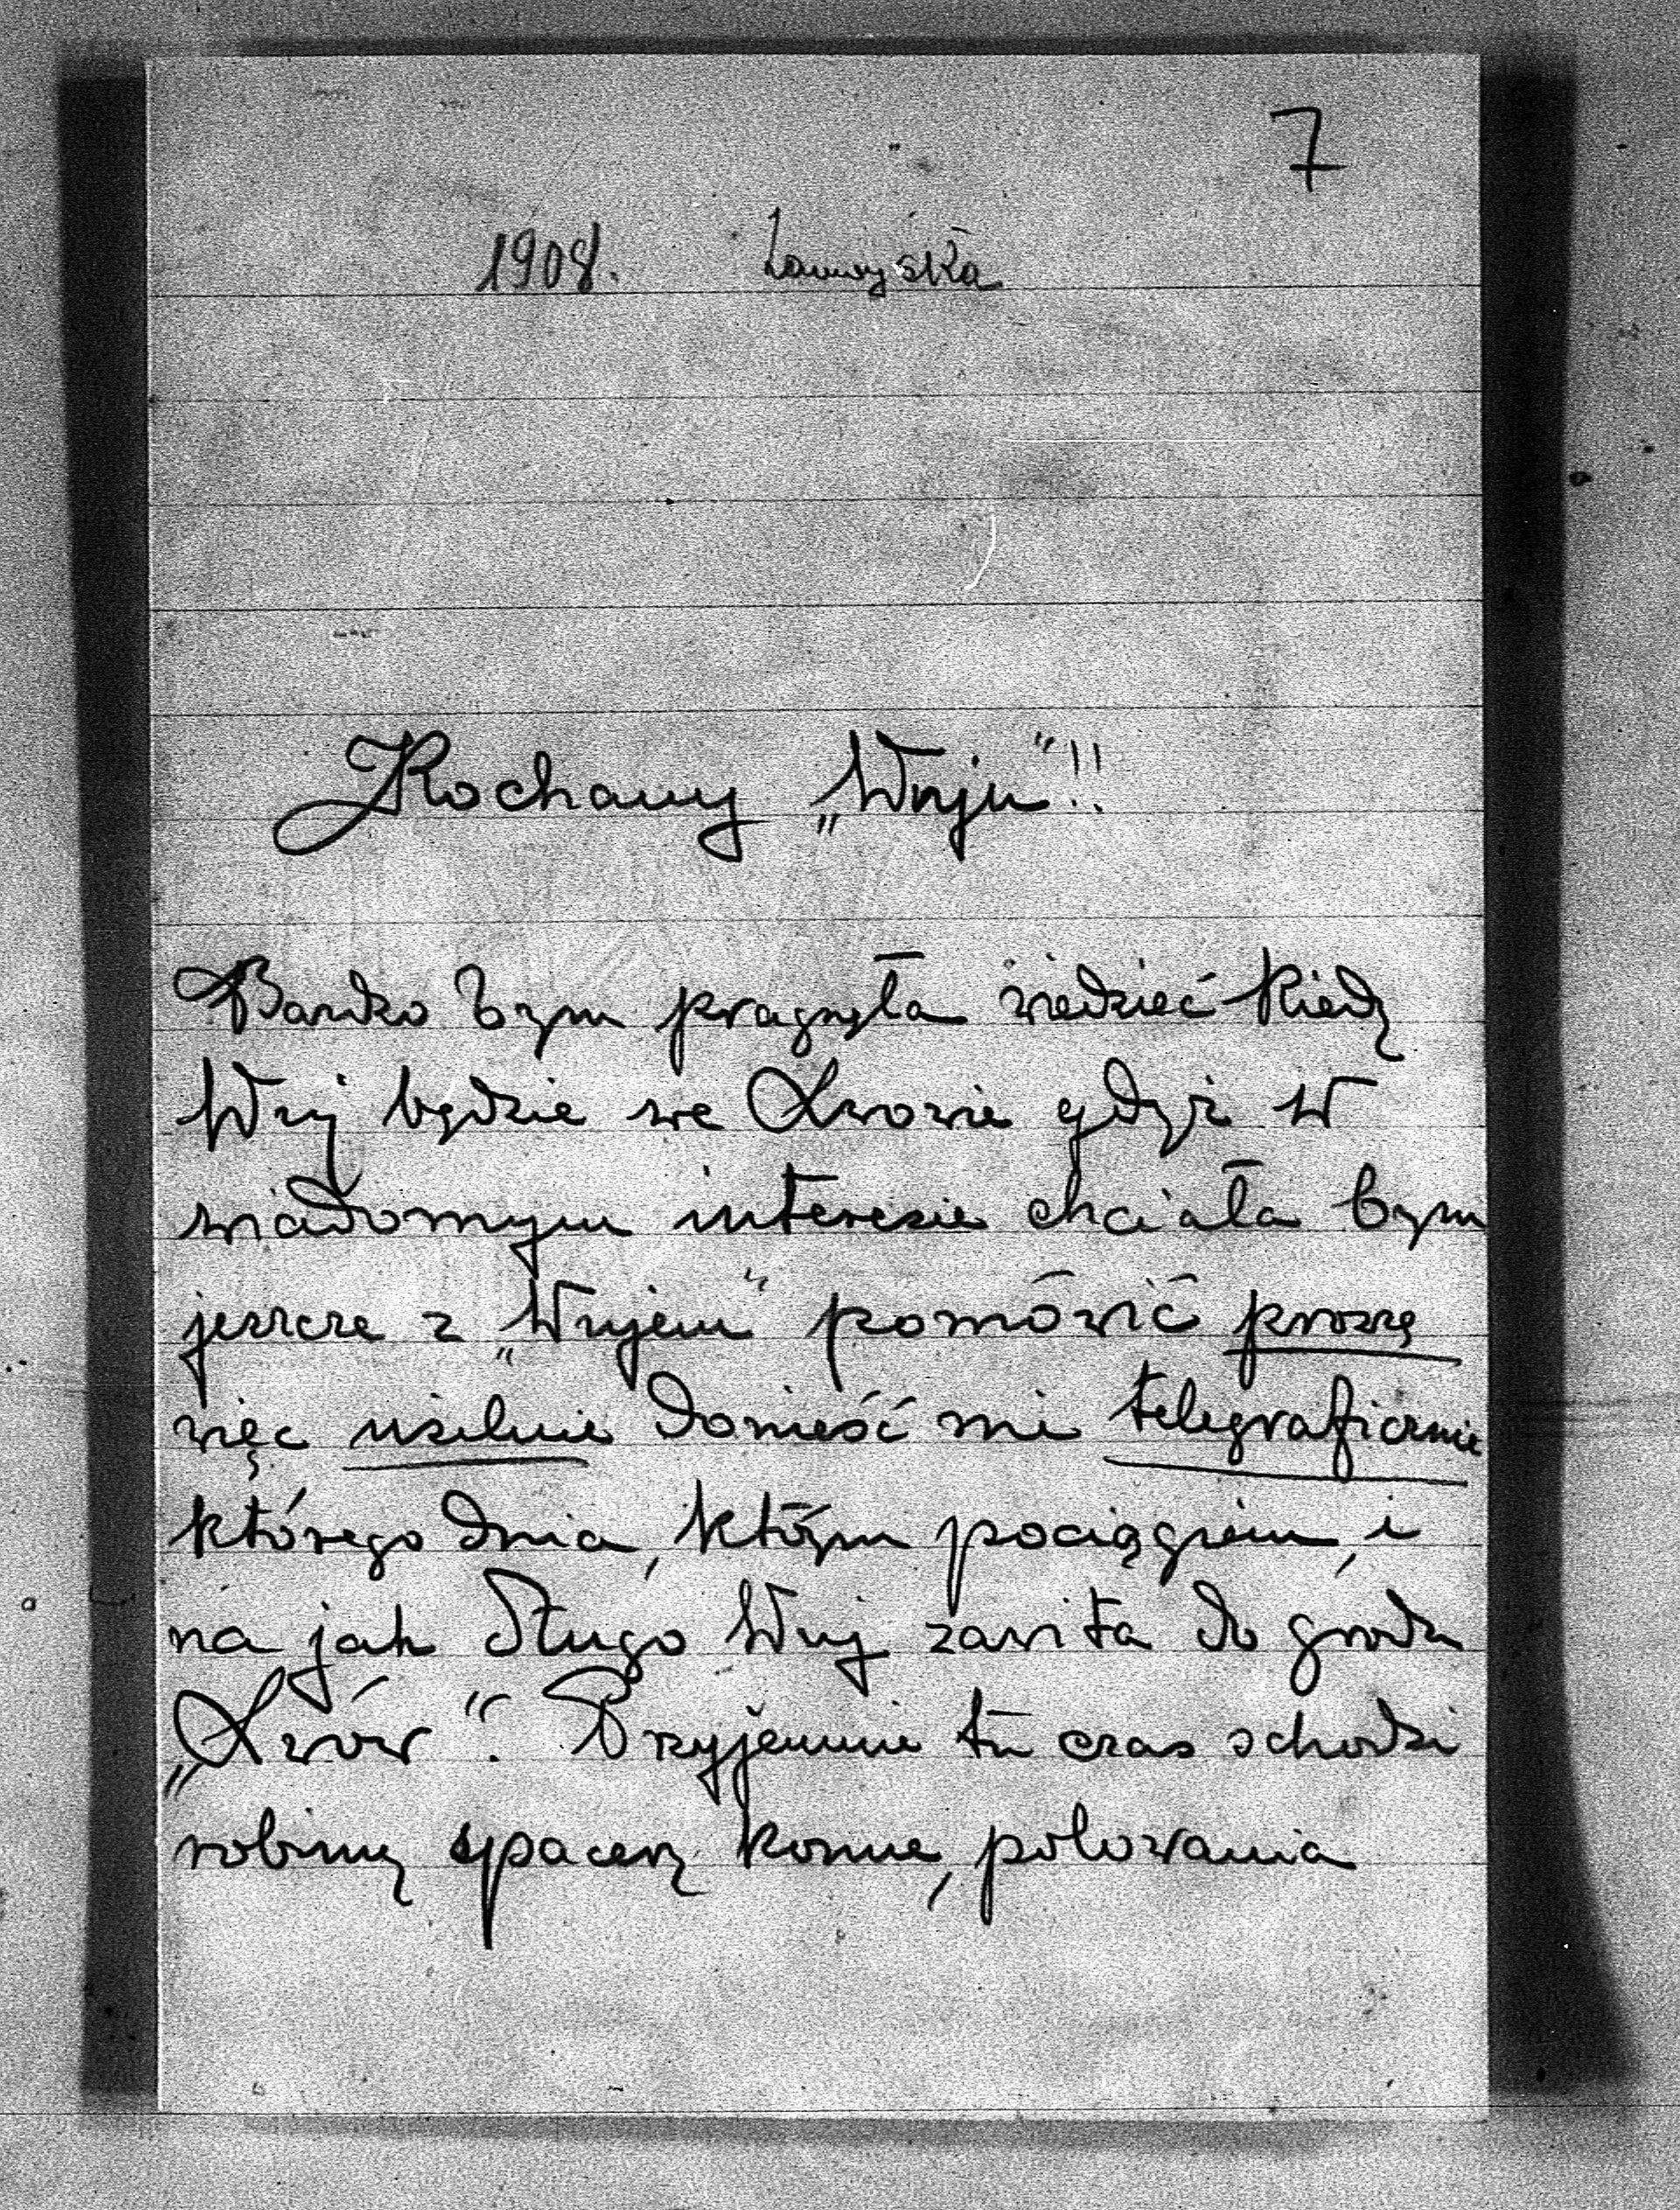 7
1908.
Kochany „Wuju“!!
Bardzo bym pragnęła wiedzieć kiedy
Wuj będzie we Lwowie gdyż w
wiadomym interesie chciała bym
jeszcze z „Wujem“ pomówić proszę
więc usilnie donieść mi telegraficznie
którego dnia, którym pociągiem, i
na jak długo Wuj zawita do grodu
„Lwów“. Przyjemnie tu czas schodzi
robimy spacery konne, polowania